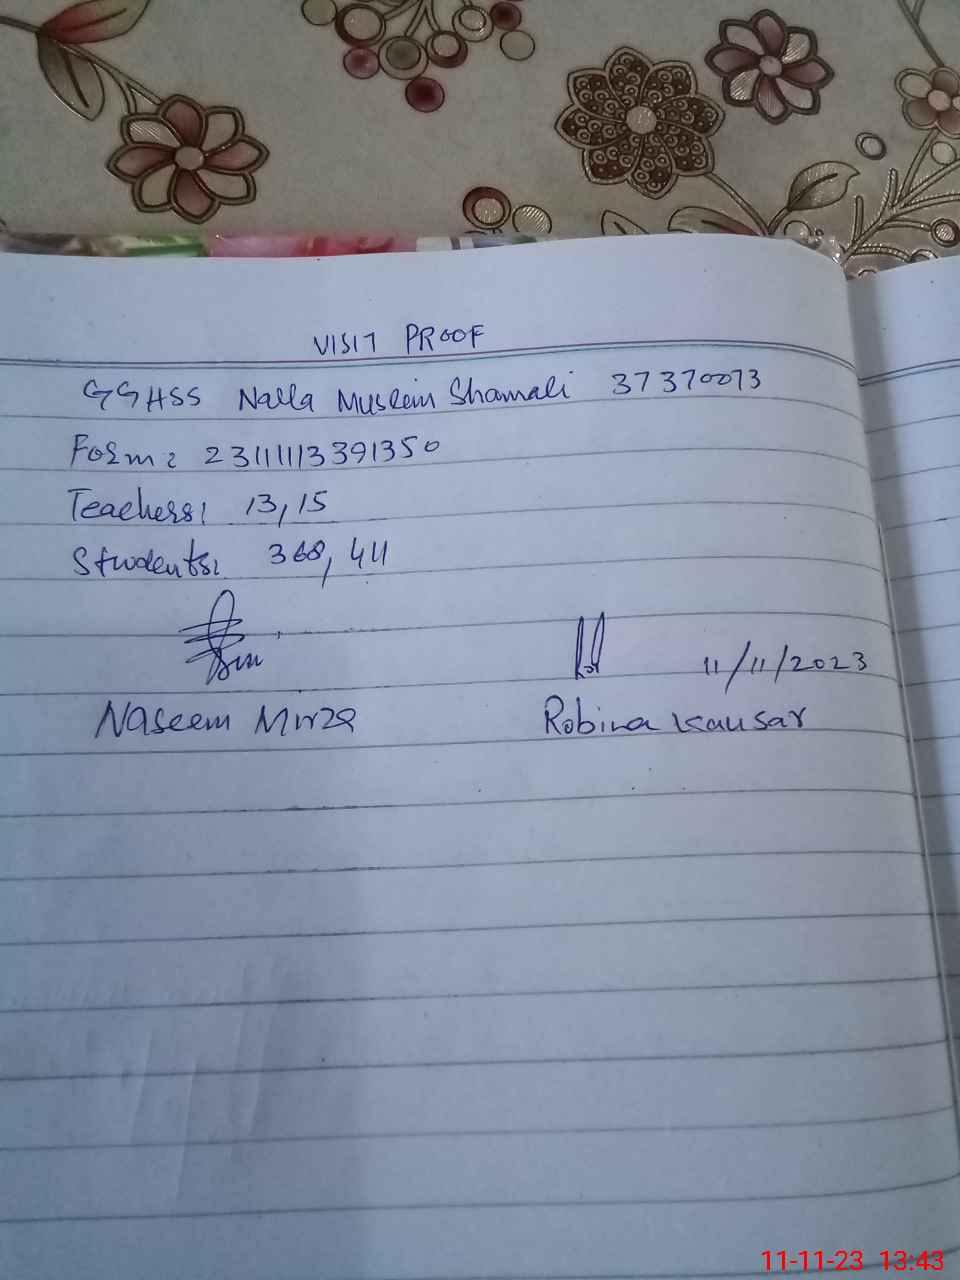 VISIT PROOF
GGHSS Nalla Muslim Shamali 37370073
Form: 23111113391350
Teachers: 13, 15
Students: 368, 411
11/11/2023
Naseem Mirza Robina Kausar
11-11-23 13:43